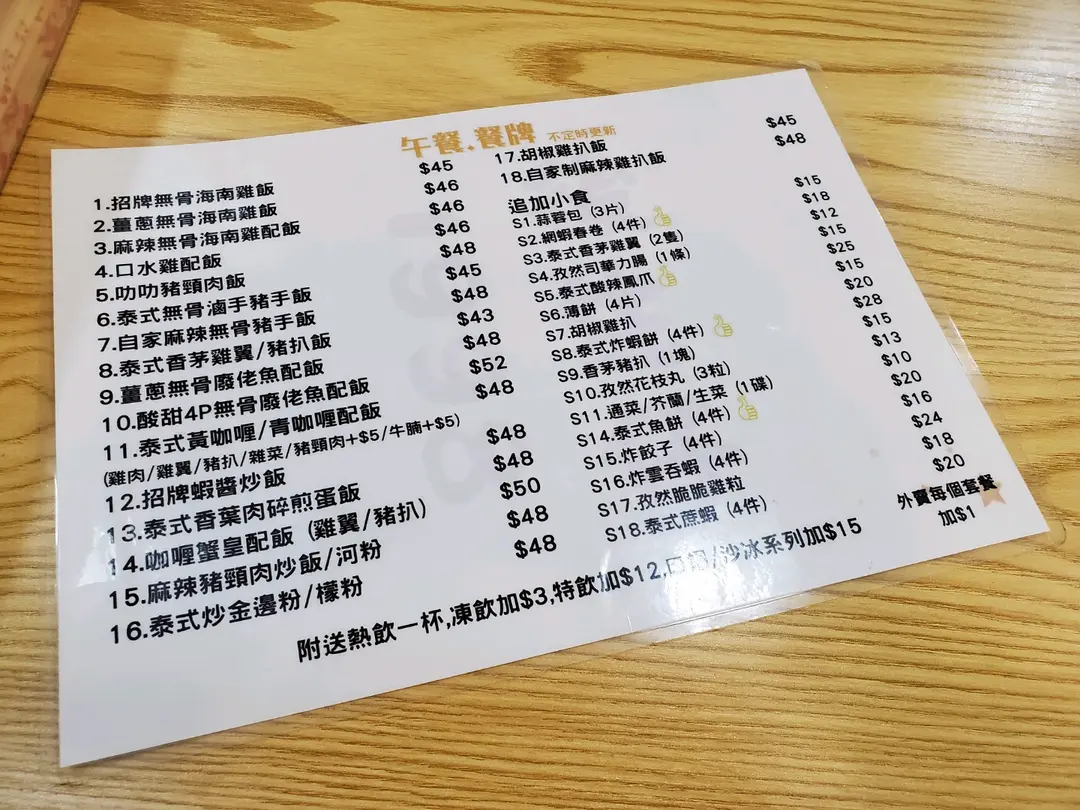 午餐.餐牌 不定時更新
1.招牌無骨海南雞飯 $45
2.薑蔥無骨海南雞飯 $46
3.麻辣無骨海南雞配飯 $46
4.口水雞配飯 $46
5.叻叻豬頸肉飯 $48
6.泰式無骨滷手豬手飯 $45
7.自家麻辣無骨豬手飯 $48
8.泰式香茅雞翼/豬扒飯 $43
9.薑蔥無骨廢佬魚配飯 $48
10.酸甜4P無骨廢佬魚配飯 $52
11.泰式黃咖喱/青咖喱配飯 $48
(雞肉/雞翼/豬扒/雜菜/豬頸肉+$5/牛腩+$5)
12.招牌蝦醬炒飯 $48
13.泰式香葉肉碎煎蛋飯 $48
14.咖喱蟹皇配飯 (雞翼/豬扒) $50
15.麻辣豬頸肉炒飯/河粉 $48
16.泰式炒金邊粉/檬粉 $48
17.胡椒雞扒飯 $45
18.自家制麻辣雞扒飯 $48
追加小食
S1.蒜蓉包 (3片) $15
S2.網蝦春卷 (4件) $18
S3.泰式香茅雞翼 (2隻) $12
S4.孜然司華力腸 (1條) $15
S5.泰式酸辣鳳爪 $25
S6.薄餅 (4片) $15
S7.胡椒雞扒 $20
S8.泰式炸蝦餅 (4件) $28
S9.香茅豬扒 (1塊) $15
S10.孜然花枝丸 (3粒) $13
S11.通菜/芥蘭/生菜 (1碟) $10
S14.泰式魚餅 (4件) $20
S15.炸餃子 (4件) $16
S16.炸雲吞蝦 (4件) $24
S17.孜然脆脆雞粒 $18
S18.泰式蔗蝦 (4件) $20
附送熱飲一杯,凍飲加$3,特飲加$12,/沙冰系列加$15
外賣每個套餐
加$1